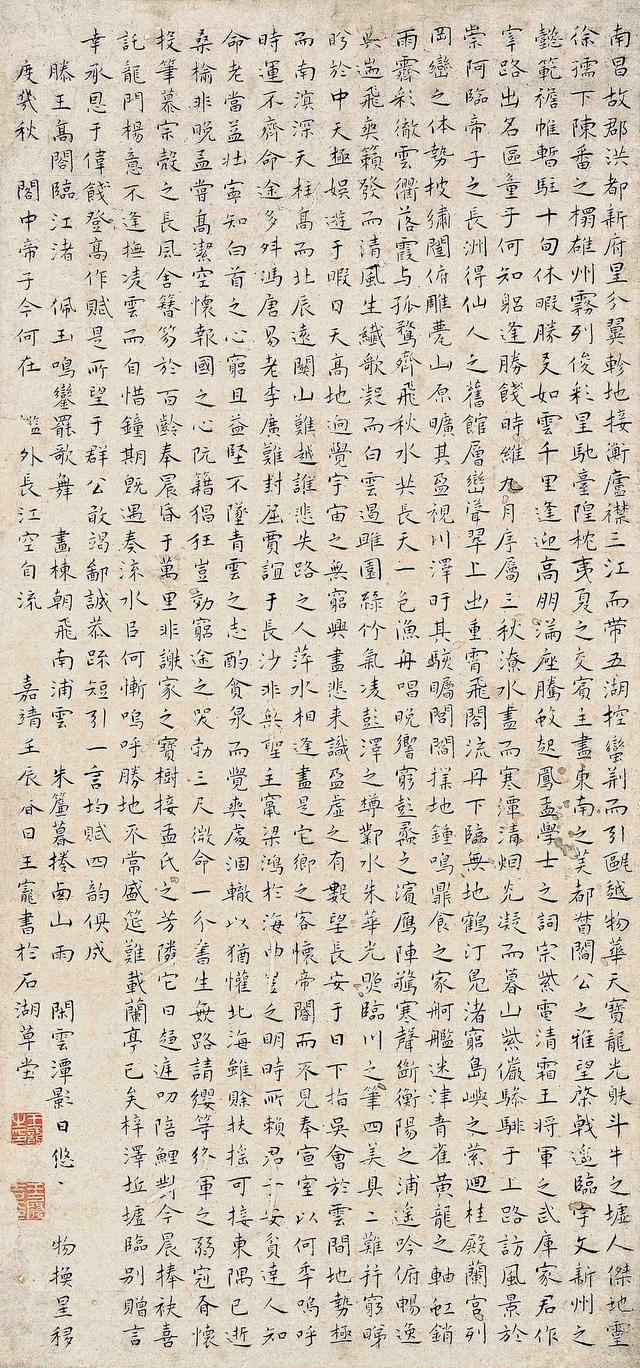 南昌故郡洪都新府星分翼軫地接衡廬襟三江而帶五湖控蠻荆而引甌越物華天寶龍光眹斗牛之墟人傑地靈
徐孺下陳蕃之榻雄州霧列俊彩星馳臺隍枕夷夏之交賓主盡東南之美都督閻公之雅望棨戟遙臨宇文新州之
懿範襜帷暫駐十旬休暇勝友如雲千里逢迎高朋滿座騰蛟起鳳孟學士之詞宗紫電清霜王將軍之武庫家君作
宰路出名區童子何知躬逢勝餞時維九月序屬三秋潦水盡而寒潭清烟光凝而暮山紫儼驂騑于上路訪風景於
崇阿臨帝子之長洲得仙人之舊館層巒聳翠上出重霄飛閣流丹下臨無地鶴汀鳧渚窮島嶼之縈迴桂殿蘭宮列
岡巒之体勢披繡闥俯雕甍山原曠其盈視川澤盱其駭矚閭閻撲地鐘鳴鼎食之家舸艦迷津青雀黃龍之軸虹銷
雨霽彩徹雲衢落霞与孤鶩齊飛秋水共長天一色漁舟唱晚響窮彭蠡之濱雁陣驚寒聲斷衡陽之浦遙吟俯暢逸
興遄飛爽籟發而清風生纖歌凝而白雲遏睢園綠竹氣凌彭澤之樽鄴水朱華光照臨川之筆四美具二難并窮睇
眄於中天極娛遊于暇日天高地迥覺宇宙之無窮興盡悲来識盈虛之有數望長安于日下指吳會於雲間地勢極
而南溟深天柱高而北辰遠關山難越誰悲失路之人萍水相逢盡是它鄉之客懷帝閽而不見奉宣室以何年嗚呼
時運不齊命途多舛馮唐易老李廣難封屈賈誼于長沙非無聖主竄梁鴻於海曲豈乏明時所賴君子安貧達人知
命老當益壯寧知白首之心窮且益堅不墜青雲之志酌貪泉而覺爽處涸轍以猶懽北海雖賒扶搖可接東隅已逝
桑榆非晚孟嘗高潔空懷報國之心阮籍猖狂豈効窮途之哭勃三尺微命一介書生無路請纓等終軍之弱冠有懷
投筆慕宗慤之長風舍簪笏於百齡奉晨昏于萬里非謝家之寶樹接孟氏之芳隣它日趨庭叨陪鯉對今晨捧袂喜
託龍門楊意不逢撫凌雲而自惜鐘期既遇奏流水以何慚嗚呼勝地不常盛筵難載蘭亭已矣梓澤坵墟臨別贈言
幸承恩于偉餞登高作賦是所望于群公敢竭鄙誠恭疏短引一言均賦四韻俱成
滕王高閣臨江渚 佩玉鳴鑾罷歌舞 畫棟朝飛南浦雲 朱簾暮捲西山雨 閑雲潭影日悠〻 物換星移
度幾秋 閣中帝子今何在 檻外長江空自流 嘉靖壬辰春日王寵書於石湖草堂